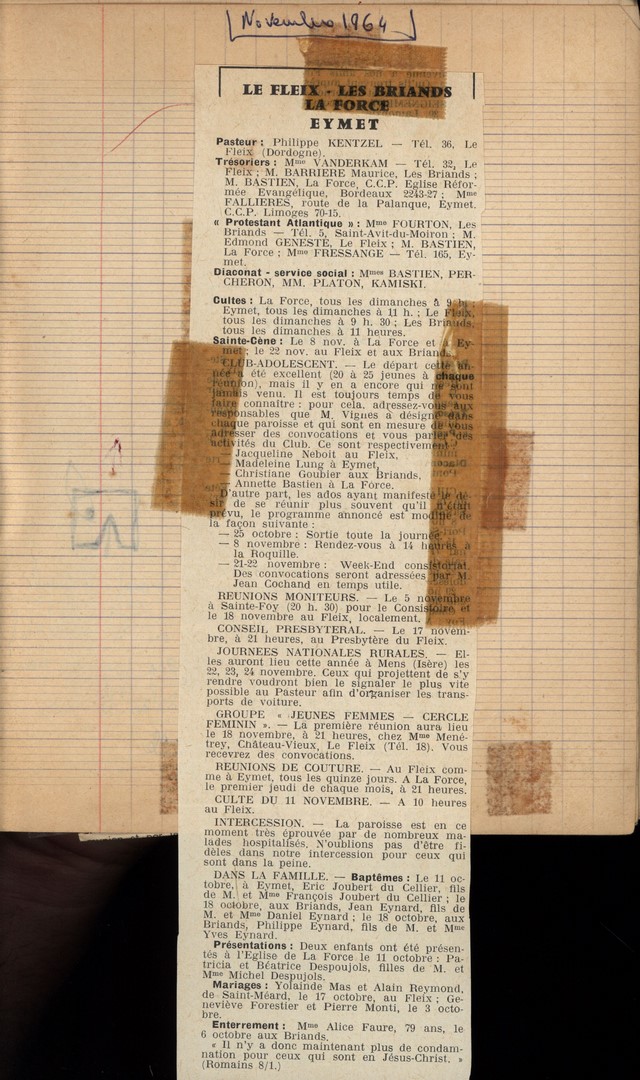 [Novembre 1964]
LE FLEIX - LES BRIANDS
LA FORCE
EYMET
Pasteur : Philippe KENTZEL — Tél. 36, Le
Fleix (Dordogne).
Trésoriers : Mme VANDERKAM — Tél. 32, Le
Fleix ; M. BARRIERE Maurice, Les Briands ;
M. BASTIEN, La Force, C.C.P. Eglise Réfor-
mée Evangélique, Bordeaux 2243-27 ; Mme
FALLIERES, route de la Palanque, Eymet.
C.C.P. Limoges 70-15.
« Protestant Atlantique » : Mme FOURTON, Les
Briands — Tél. 5, Saint-Avit-du-Moiron ; M.
Edmond GENESTE, Le Fleix ; M. BASTIEN,
La Force ; Mme FRESSANGE — Tél. 165, Ey-
met.
Diaconat - service social : Mmes BASTIEN, PER-
CHERON, MM. PLATON, KAMISKI.
Cultes : La Force, tous les dimanches à 9 h. ;
Eymet, tous les dimanches à 11 h. ; Le Fleix,
tous les dimanches à 9 h. 30 ; Les Briands,
tous les dimanches à 11 heures.
Sainte-Cène : Le 8 nov. à La Force et à Ey-
met ; le 22 nov. au Fleix et aux Briands.
CLUB-ADOLESCENT. — Le départ cette an-
née a été excellent (20 à 25 jeunes à chaque
réunion), mais il y en a encore qui ne sont
jamais venu. Il est toujours temps de vous
faire connaître : pour cela, adressez-vous aux
responsables que M. Vignes a désigné dans
chaque paroisse et qui sont en mesure de vous
adresser des convocations et vous parler des
activités du Club. Ce sont respectivement :
— Jacqueline Neboit au Fleix,
— Madeleine Lung à Eymet,
— Christiane Goubier aux Briands,
— Annette Bastien à La Force.
D'autre part, les ados ayant manifesté le dé-
sir de se réunir plus souvent qu'il n'était
prévu, le programme annoncé est modifié de
la façon suivante :
— 25 octobre : Sortie toute la journée.
— 8 novembre : Rendez-vous à 14 heures à
la Roquille.
— 21-22 novembre : Week-End consistorial.
Des convocations seront adressées par M.
Jean Cochand en temps utile.
REUNIONS MONITEURS. — Le 5 novembre
à Sainte-Foy (20 h. 30) pour le Consistoire et
le 18 novembre au Fleix, localement.
CONSEIL PRESBYTERAL. — Le 17 novem-
bre, à 21 heures, au Presbytère du Fleix.
JOURNEES NATIONALES RURALES. — El-
les auront lieu cette année à Mens (Isère) les
22, 23, 24 novembre. Ceux qui projettent de s'y
rendre voudront bien le signaler le plus vite
possible au Pasteur afin d'organiser les trans-
ports de voiture.
GROUPE « JEUNES FEMMES — CERCLE
FEMININ ». — La première réunion aura lieu
le 18 novembre, à 21 heures, chez Mme Mené-
trey, Château-Vieux, Le Fleix (Tél. 18). Vous
recevrez des convocations.
REUNIONS DE COUTURE. — Au Fleix com-
me à Eymet, tous les quinze jours. A La Force,
le premier jeudi de chaque mois, à 21 heures.
CULTE DU 11 NOVEMBRE. — A 10 heures
au Fleix.
INTERCESSION. — La paroisse est en ce
moment très éprouvée par de nombreux ma-
lades hospitalisés. N'oublions pas d'être fi-
dèles dans notre intercession pour ceux qui
sont dans la peine.
DANS LA FAMILLE. — Baptêmes : Le 11 oc-
tobre, à Eymet, Eric Joubert du Cellier, fils
de M. et Mme François Joubert du Cellier ; le
18 octobre, aux Briands, Jean Eynard, fils de
M. et Mme Daniel Eynard ; le 18 octobre, aux
Briands, Philippe Eynard, fils de M. et Mme
Yves Eynard.
Présentations : Deux enfants ont été présen-
tés à l'Eglise de La Force le 11 octobre : Pa-
tricia et Béatrice Despoujols, filles de M. et
Mme Michel Despujols.
Mariages : Yolainde Mas et Alain Reymond,
de Saint-Méard, le 17 octobre, au Fleix ; Ge-
neviève Forestier et Pierre Monti, le 3 octo-
bre.
Enterrement : Mme Alice Faure, 79 ans, le
6 octobre aux Briands.
« Il n'y a donc maintenant plus de condam-
nation pour ceux qui sont en Jésus-Christ. »
(Romains 8/1.)